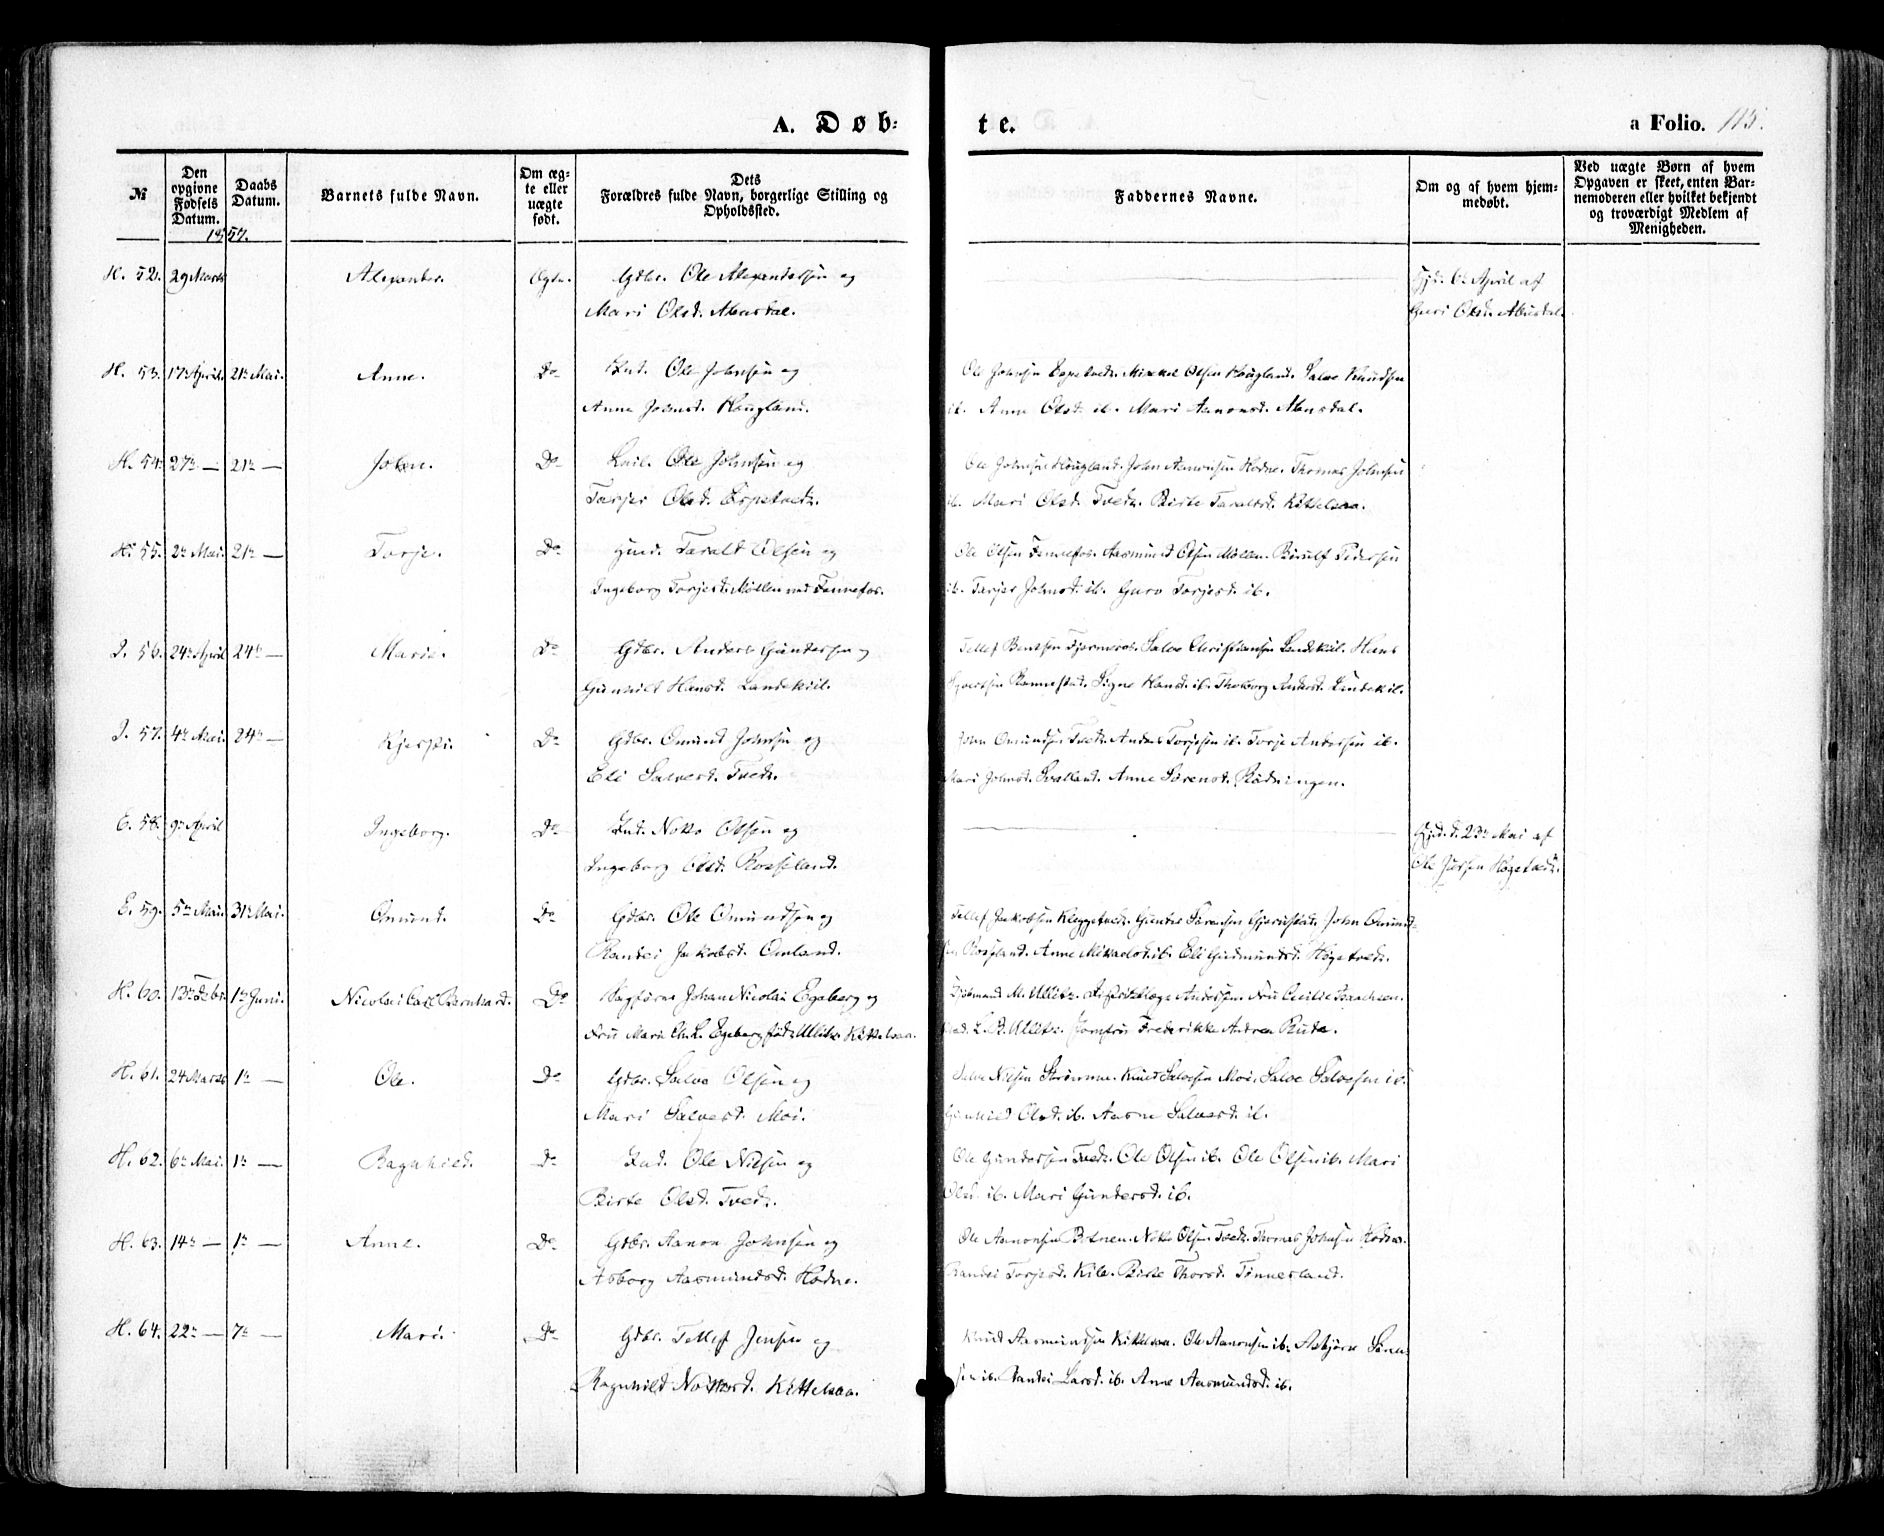 A. Døb-
te.
a Folio. 115.
№
Den opgivne Fødsels Datum.
Daabs Datum.
Barnets fulde Navn.
Om ægte eller uægte født.
Dets Forældres fulde Navn, borgerlige Stilling og Opholdssted.
Faddernes Navne.
Om og af hvem hjemmedøbt.
Ved uægte Børn af hvem Opgaven er skeet, enten Barnemoderen eller hvilket bekjendt og troværdigt Medlem af Menigheden.
1857.
H. 52. 29 Marts Alexander. Ægte. Gdbr. Ole Alexandersen og
Mari Olsd. Abusdal.
Hjd. 6te April af
Guri Olsd. Abusdal.
H. 53. 17de April. 21de Mai. Anne. Do Ind. Ole Johnsen og
Anne Johnsd. Hougland.
Ole Johnsen Espetvedt. Mikkel Olsen Hougland. Salve Knudsen
ib. Anne Olsd. ib. Mari Aanonsd. Abusdal.
H. 54. 27de — 21de — John. Do Ole Johnsen og
Torjer Olsd. Espetvedt.
Ole Johnsen Hougland. John Aanonsen Hodne. Thomas Johnsen
ib. Mari Olsd. Tvedt. Birte Taraldsd. Kittelsaa.
H. 55. 2den Mai. 21de — Torje. Do Taralt Olsen og
Ingeborg Torjesd. Møllen ved Fennefos.
Ole Olsen Fennefos. Aasmund Olsen Møllen. Pedersen
ib. Torjer Johnsd. ib. Guro Torjesd. ib.
I. 56. 24de April 24de — Marie. Do Gdbr. Anders Gundersen og
Gunhild Hansd. Landekiil.
Tellef Bentsen Salve Christiansen Landekiil. Hans
Signe Hansd. ib. Thorborg Andersd. Landekiil.
I. 57. 4de Mai. 24de — Kjersti. Do Gdbr. Omund Johnsen og
Eli Salvesd. Tvedt.
John Omundsen Tvedt. Anders Torjesen ib. Torje Andersen ib.
Mari Johnsd. Anne Sørensd. Rødningen.
E. 58. 9de April Ingeborg. Do Ind. Notto Olsen og
Ingeborg Olsd. Rosseland.
Hjd. d. 23de Mai af
Ole Hægetvedt.
E. 59. 5te Mai. 31te Mai. Omund. Do Gdbr. Ole Omundsen og
Randei Jakobsd. Omland.
Tellef Jakobsen Kleggetvedt. Gunder Sørensen John Omund-
sen Rosseland. Anne Mikaelsd. ib. Eli Gudmundsd. Hægetvedt.
H. 60. 13de Febr. 1ste Juni. Nicolai Carl Bernhard. Do Sagfører Johan Nicolai Egeberg og
Fru Marie Egeberg født Ullitz Kittelsaa.
M. Ullitz. Andersen. Fru Cecilie Isaachsen.
Ullitz. Jomfru Frederikke Andrea Rude.
H. 61. 24 Marts 1ste — Ole. Do Gdbr. Salve Olsen og
Mari Salvesd. Moi.
Salve Nilsen Strømme. Knud Salvesen Moi. Salve Salvesen ib.
Gunhild Olsd. ib. Aasne Salvesd. ib.
H. 62. 6te Mai. 1ste — Ragnhild. Do Ind. Ole Nilsen og
Birte Olsd. Tvedt.
Ole Gundersen Tvedt. Ole Olsen ib. Ole Olsen ib. Mari
Olsd. ib. Mari Gundersd. ib.
H. 63. 14de — 1ste — Anne. Do Gdbr. Aanon Johnsen og
Asborg Aasmundsd. Hodne.
Ole Aanonsen Notto Olsen Tvedt. Thomas Johnsen Hodne.
Randei Torjesd. Kile. Birte Thorsd. Tønnesland.
H. 64. 22de — 7de — Mari. Do Gdbr. Tellef Jensen og
Ragnhild Nottosd. Kittelsaa.
Knud Aasmundsen Kittelsaa. Ole Aanonsen ib. Asbjørn
ib. Randei Larsd. ib. Anne Aasmundsd. ib.